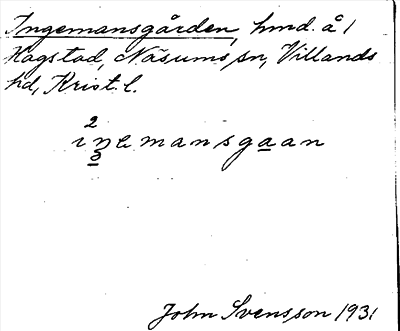 Ingemansgården, hmd. å 1
Hagstad, Näsums sn, Villands
hd, Krist. l.
2
inemansgaan
John Svensson 1931